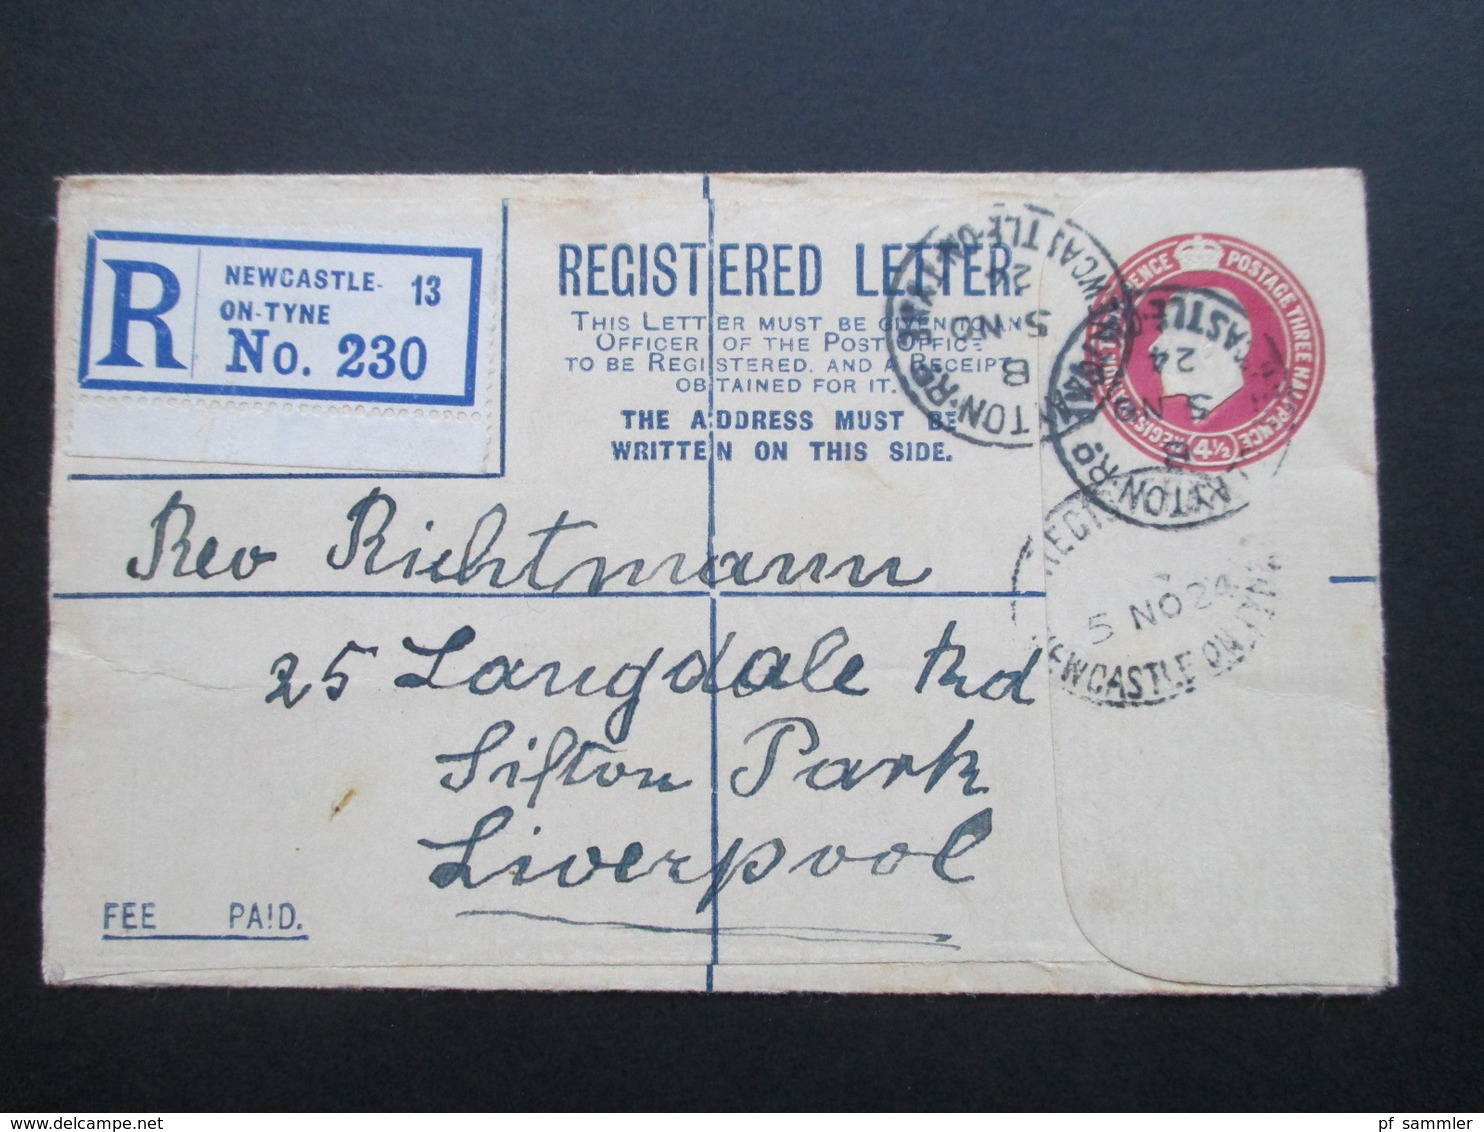 R
NEWCASTLE-
ON-TYNE
13
No. 230
REGISTERED LETTER.
THIS LETTER MUST BE GIVEN TO AN
OFFICER OF THE POST OFFICE
TO BE REGISTERED, AND A RECEIPT
OBTAINED FOR IT.
THE ADDRESS MUST BE
WRITTEN ON THIS SIDE.
POSTAGE THREE HALFPENCE
4½
5 NO
24
5 NO
24
5 NO 24
NEWCASTLE ON TYNE
Rev Richtmann
25 Langdale Rd
Sifton Park
Liverpool
FEE PAID.
pf sammler